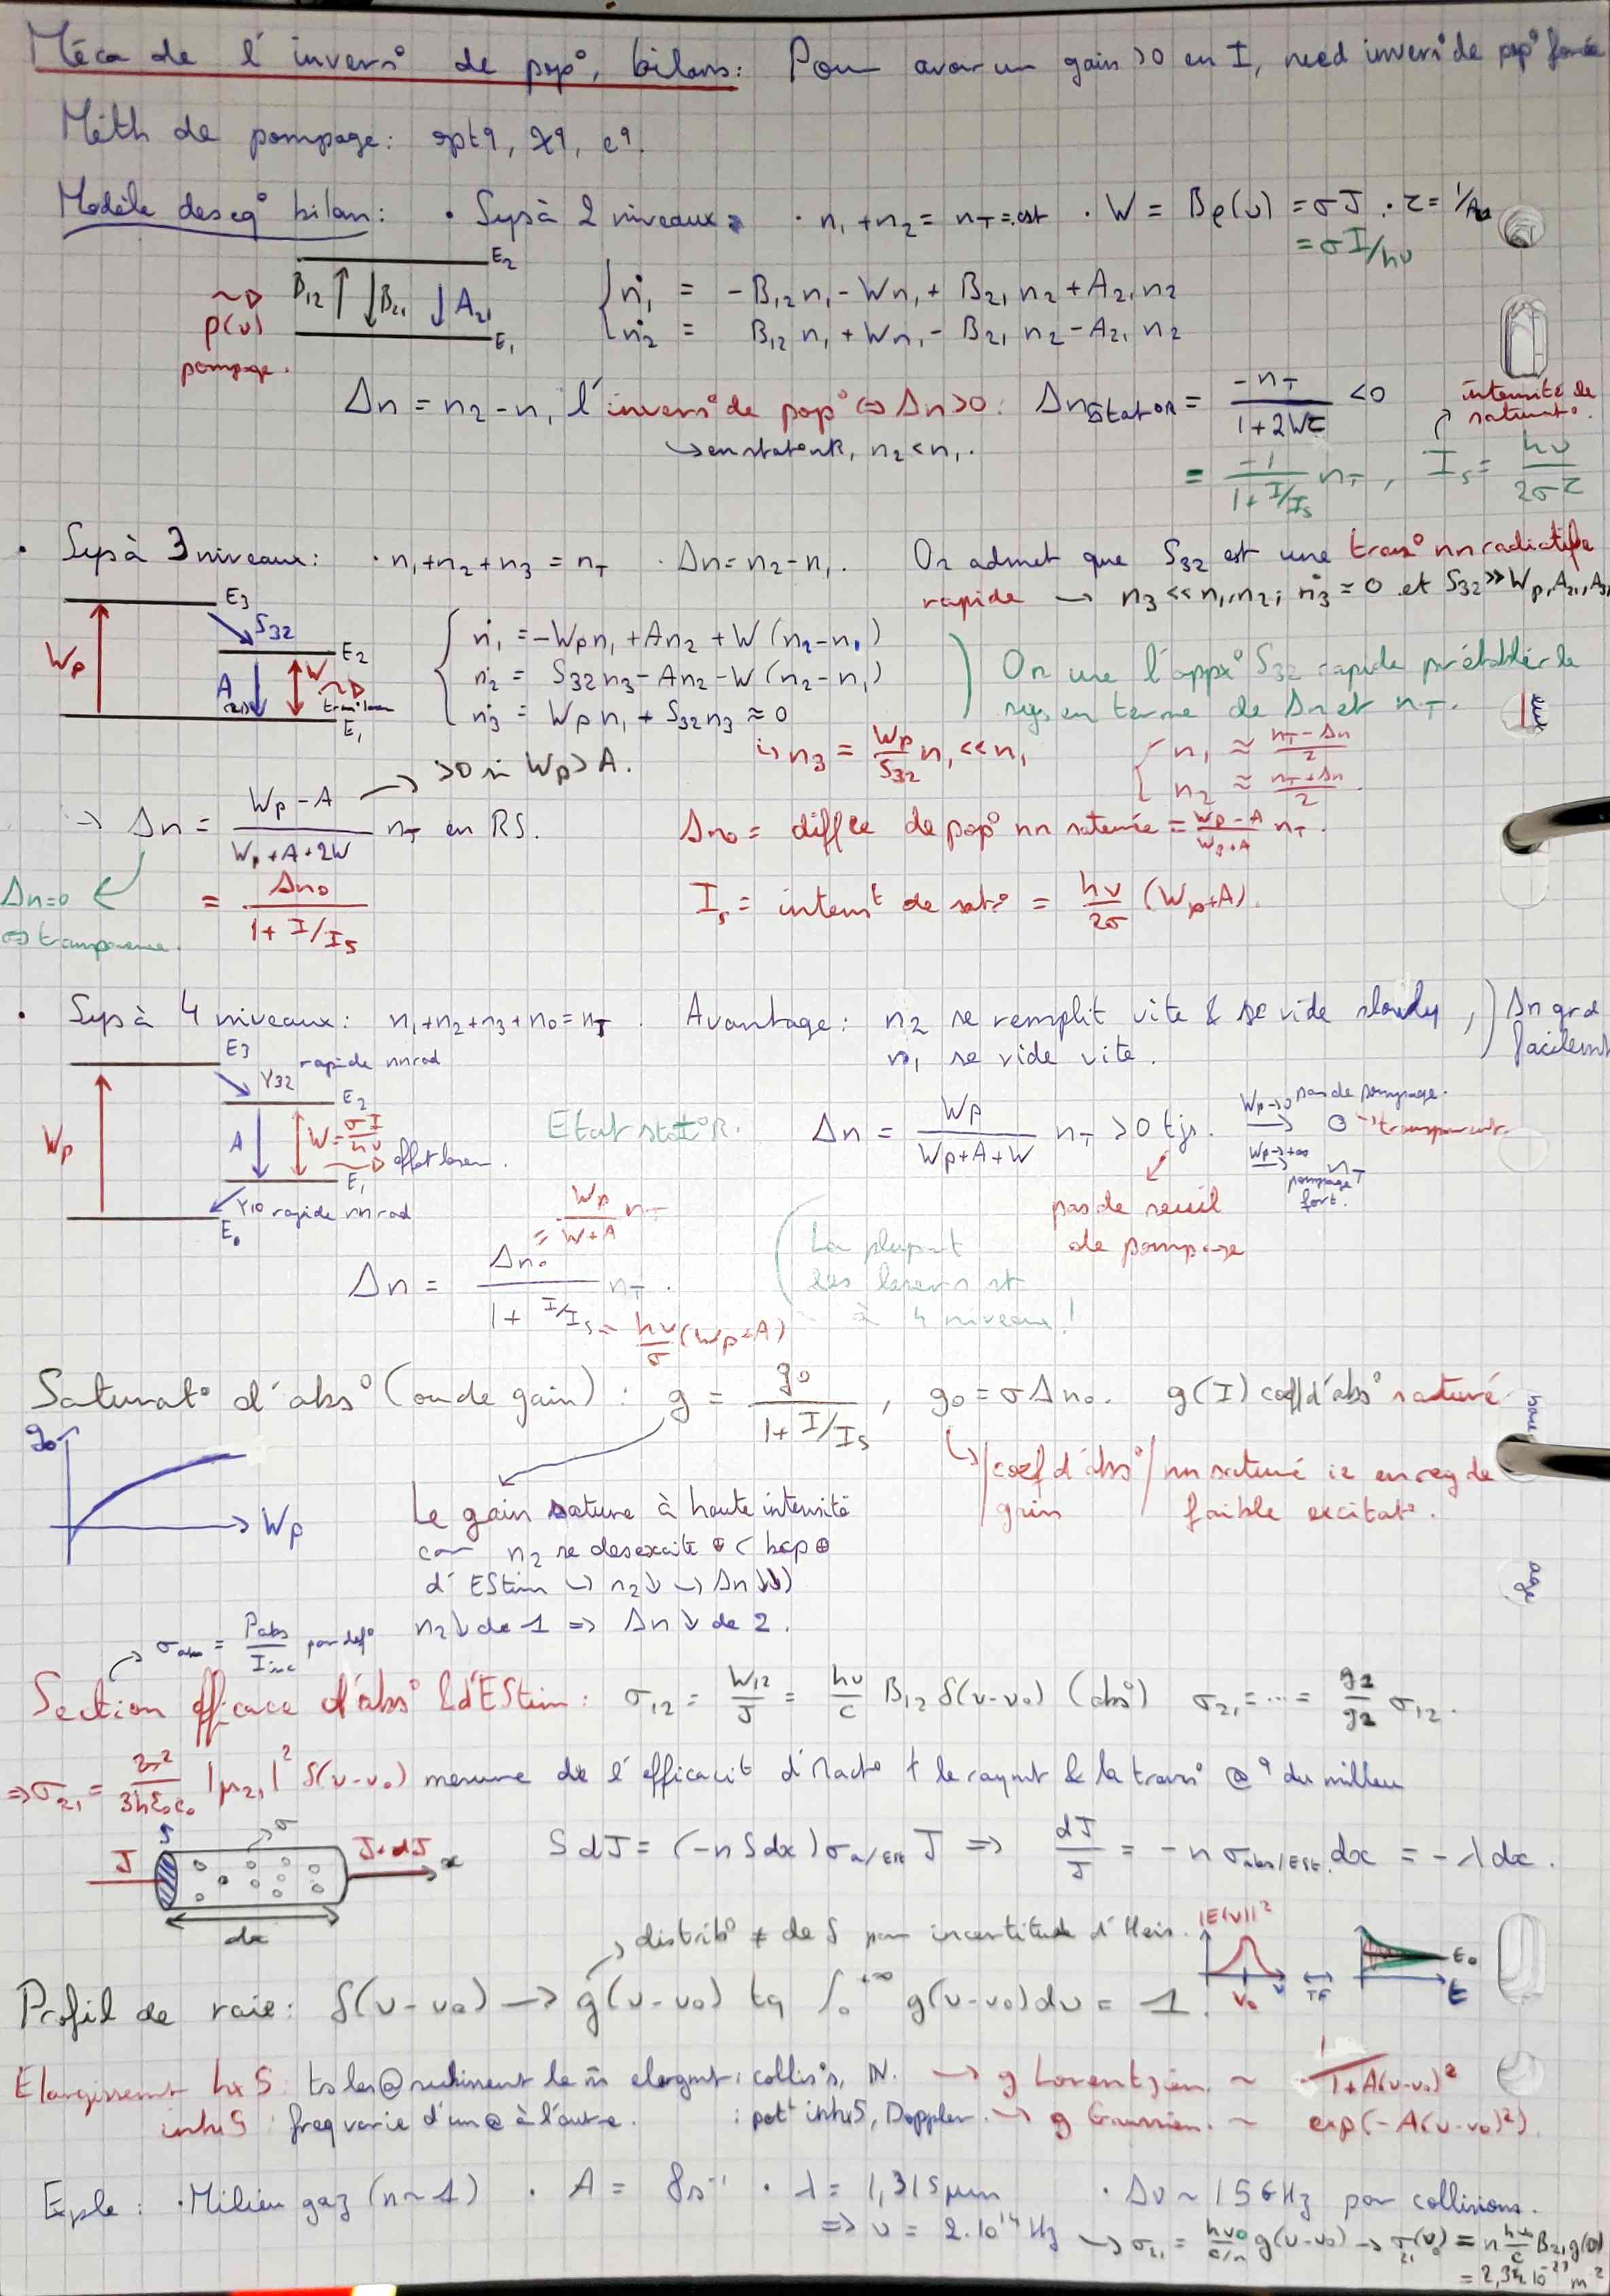 Méca de l'invers° de pop°, bilans: Pour avoir un gain >0 en I, need invers° de pop° forcée
Méth de pompage: opt9, χ9, e9.
Modèle des eq° bilan: • Sys à 2 niveaux: • n₁+n₂ = n_T = cst • W = Bρ(ν) = σJ • τ = 1/A₂₁
= σI/hν
E₂
B₁₂ ↑ ↓B₂₁ ↓A₂₁
E₁
ρ(ν)
pompage.
ṅ₁ = -B₁₂n₁ - Wn₁ + B₂₁n₂ + A₂₁n₂
ṅ₂ = B₁₂n₁ + Wn₁ - B₂₁n₂ - A₂₁n₂
Δn = n₂-n₁ l'invers° de pop° ⇔ Δn>0: Δn stat°R = -n_T/(1+2Wτ) <0
↪ en stat°R, n₂<n₁.
= -1/(1+I/Is) n_T, Is = hν/2στ
intensité de saturat°.
• Sys à 3 niveaux: • n₁+n₂+n₃ = n_T • Δn = n₂-n₁. On admet que S₃₂ est une trans° nn radiative
rapide → n₃<<n₁,n₂; ṅ₃=0 et S₃₂>>Wp,A₂₁,A₃₁
E₃
S₃₂
E₂
Wp
A (21)
W
E₁
ṅ₁ = -Wpn₁ + An₂ + W(n₂-n₁)
ṅ₂ = S₃₂n₃ - An₂ - W(n₂-n₁)
ṅ₃ = Wpn₁ + S₃₂n₃ ≈ 0
On use l'appx° S₃₂ rapide pr établir le
sys en terme de Δn et n_T.
↪ n₃ = Wp/S₃₂ n₁ << n₁
n₁ ≈ (n_T-Δn)/2
n₂ ≈ (n_T+Δn)/2
→ Δn = (Wp-A)/(Wp+A+2W) n_T en RS. → >0 si Wp>A.
Δn₀ = diffce de pop° nn saturée = (Wp-A)/(Wp+A) n_T.
Δn=0
⇔ transparence.
= Δn₀/(1+I/Is)
Is = intens^t de sat° = hν/2σ (Wp+A).
• Sys à 4 niveaux: n₁+n₂+n₃+n₀=n_T. Avantage: n₂ se remplit vite & se vide slowly,
n₁ se vide vite.
Δn grd
facilemt
E₃
γ₃₂ rapide nnrad
E₂
Wp
A
W = σI/hν
effet laser.
E₁
γ₁₀ rapide nnrad
E₀
Etat stat°R. Δn = Wp/(Wp+A+W) n_T >0 tjs.
Wp→0 pas de pompage. → 0 → transparent.
Wp→+∞ pompage fort. → n_T
pas de seuil
de pompage
= Wp/(W+A) n_T
Δn = Δn₀/(1+I/Is) n_T.
= hν/σ (Wp+A)
La plupart
des lasers st
à 4 niveaux!
Saturat° d'abs° (ou de gain): g = g₀/(1+I/Is), g₀ = σΔn₀. g(I) coeff d'abs° saturé
g₀
Wp
↪ |coef d'abs°/gain| nn saturé ie en reg de
faible excitat°.
Le gain sature à haute intensité
car n₂ se desexcite ⊕ (bcp ⊕
d'EStim ↪ n₂↓ ↪ Δn↓↓)
n₂↓ de 1 ⇒ Δn↓ de 2.
σabs = Pabs/Iinc par def°
Section efficace d'abs° & d'EStim: σ₁₂ = W₁₂/J = hν/c B₁₂ δ(ν-ν₀) (abs°) σ₂₁ = ... = g₂/g₂ σ₁₂.
⇒ σ₂₁ = 2π²/3hε₀c₀ |μ₂₁|² δ(ν-ν₀) mesure de l'efficacit d'∩act° † le raymt & la trans° @9 du milieu
J S σ J+dJ x
dx
S dJ = (-n S dx) σ a/ESt J ⇒ dJ/J = -n σ abs/ESt. dx = -λ dx.
↪ distrib° ≠ de δ par incertitude d'Heis.
|E(ν)|²
ν₀ ν
TF
E₀
t
Profil de raie: δ(ν-ν₀) → g(ν-ν₀) tq ∫₀^+∞ g(ν-ν₀)dν = 1.
Elargissement hxS: ts les @ subissent le m̄ elargmt: collis°s, N. → g Lorentzien. ~ 1/(1+A(ν-ν₀)²)
inhxS: freq varie d'un @ à l'autre. : pot^t inhxS, Doppler. → g Gaussien. ~ exp(-A(ν-ν₀)²).
Exple: • Milieu gaz (n~1) • A = 8s⁻¹ • λ = 1,315μm • Δν ~ 15GHz par collisions.
⇒ ν = 2.10¹⁴Hz → σ₂₁ = hν₀/(c/n) g(ν-ν₀) → σ₂₁(ν₀) = n hν₀/c B₂₁g(0)